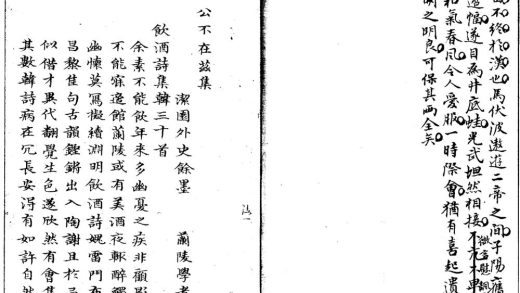 不終於漢也馬伏波遨遊二帝之間子陽
邊幅遂目為井底蛙光武坦然相接
和氣春風令人愛服一時際會猶有喜起遺
之明良可保其兩全矣
公不在茲集
潔園外史餘墨 蘭陵學
飲酒詩集韓三十首
余素不能飲年來多幽憂之疾非顧
不能寐適館蘭陵或有美酒夜輒醉
幽悚莫寫擬續淵明飲酒詩媿雷門布
昌黎佳句古韻鏗鏘出入陶謝且於
似借才異代翻覺生色遂欣然有會
其數韓詩病在冗長安得有如許自然